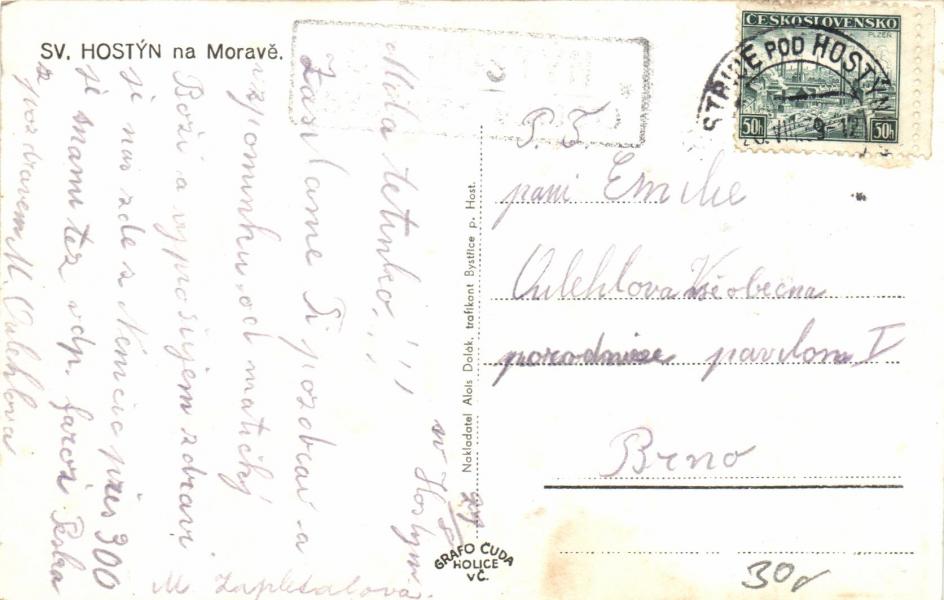 SV. HOSTÝN na Moravě.
Milá tetinko!!!
Zasílame Ti pozdrav a
vzpomínku od matičky
Boží a vyprošujem zdraví
je nas zde z Nemcic přes 300
je snami tez vdp. farař Peska
z pozdravem M. Oulehlova
M. Zapletalova.
w Hostyn
Nakladatel Alois Dolák, trafikant Bystřice p. Host.
GRAFO ČUDA
HOLICE
V Č.
ČESKOSLOVENSKO
PLZEŇ
50h 50h
BYSTŘICE POD HOSTÝNEM
P. T.
paní Emilie
Oulehlova Všeobecna
porodnice pavilon V
Brno
30,